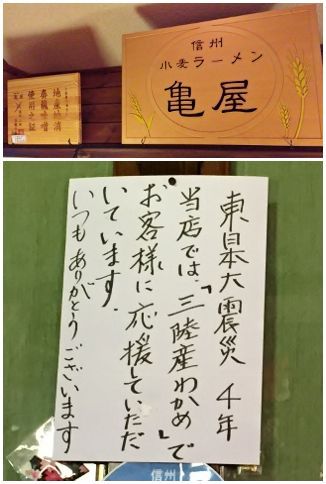 信州
小麦ラーメン
亀屋
地産地消
味噌
使用之証
東日本大震災 4年
当店では、「三陸産わかめ」で
お客様に応援していただ
いています.
いつもありがとうございます
信州